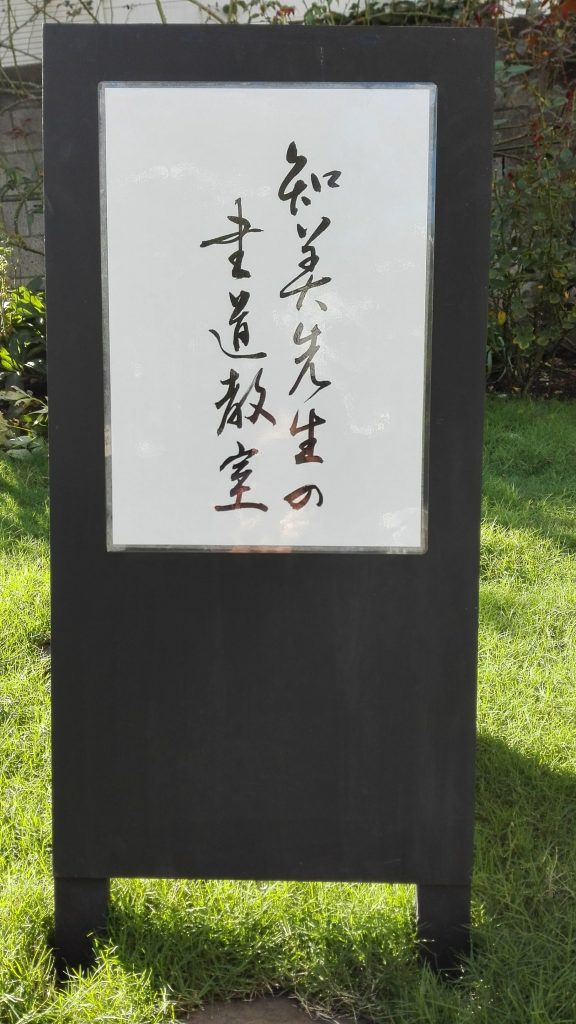 知美先生の
書道教室